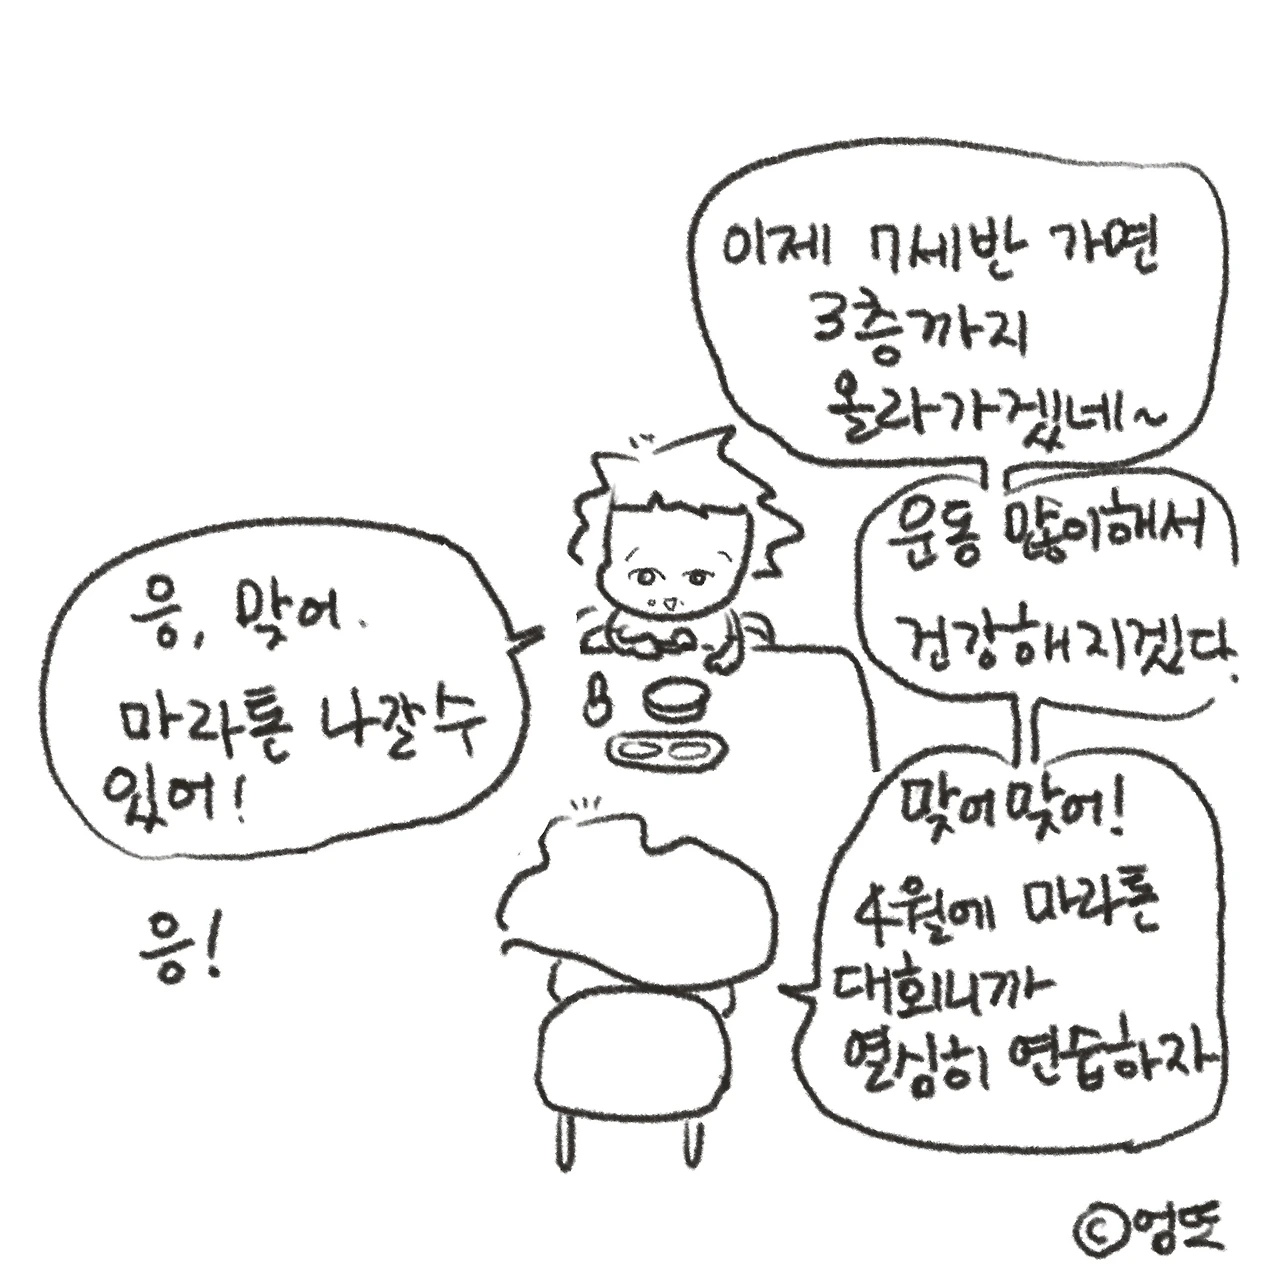 이제 7세반 가면
3층까지
올라가겠네~
운동 많이해서
건강해지겠다.
응, 맞어.
마라톤 나갈수
있어!
맞어맞어!
4월에 마라톤
대회니까
열심히 연습하자
응!
©엉또